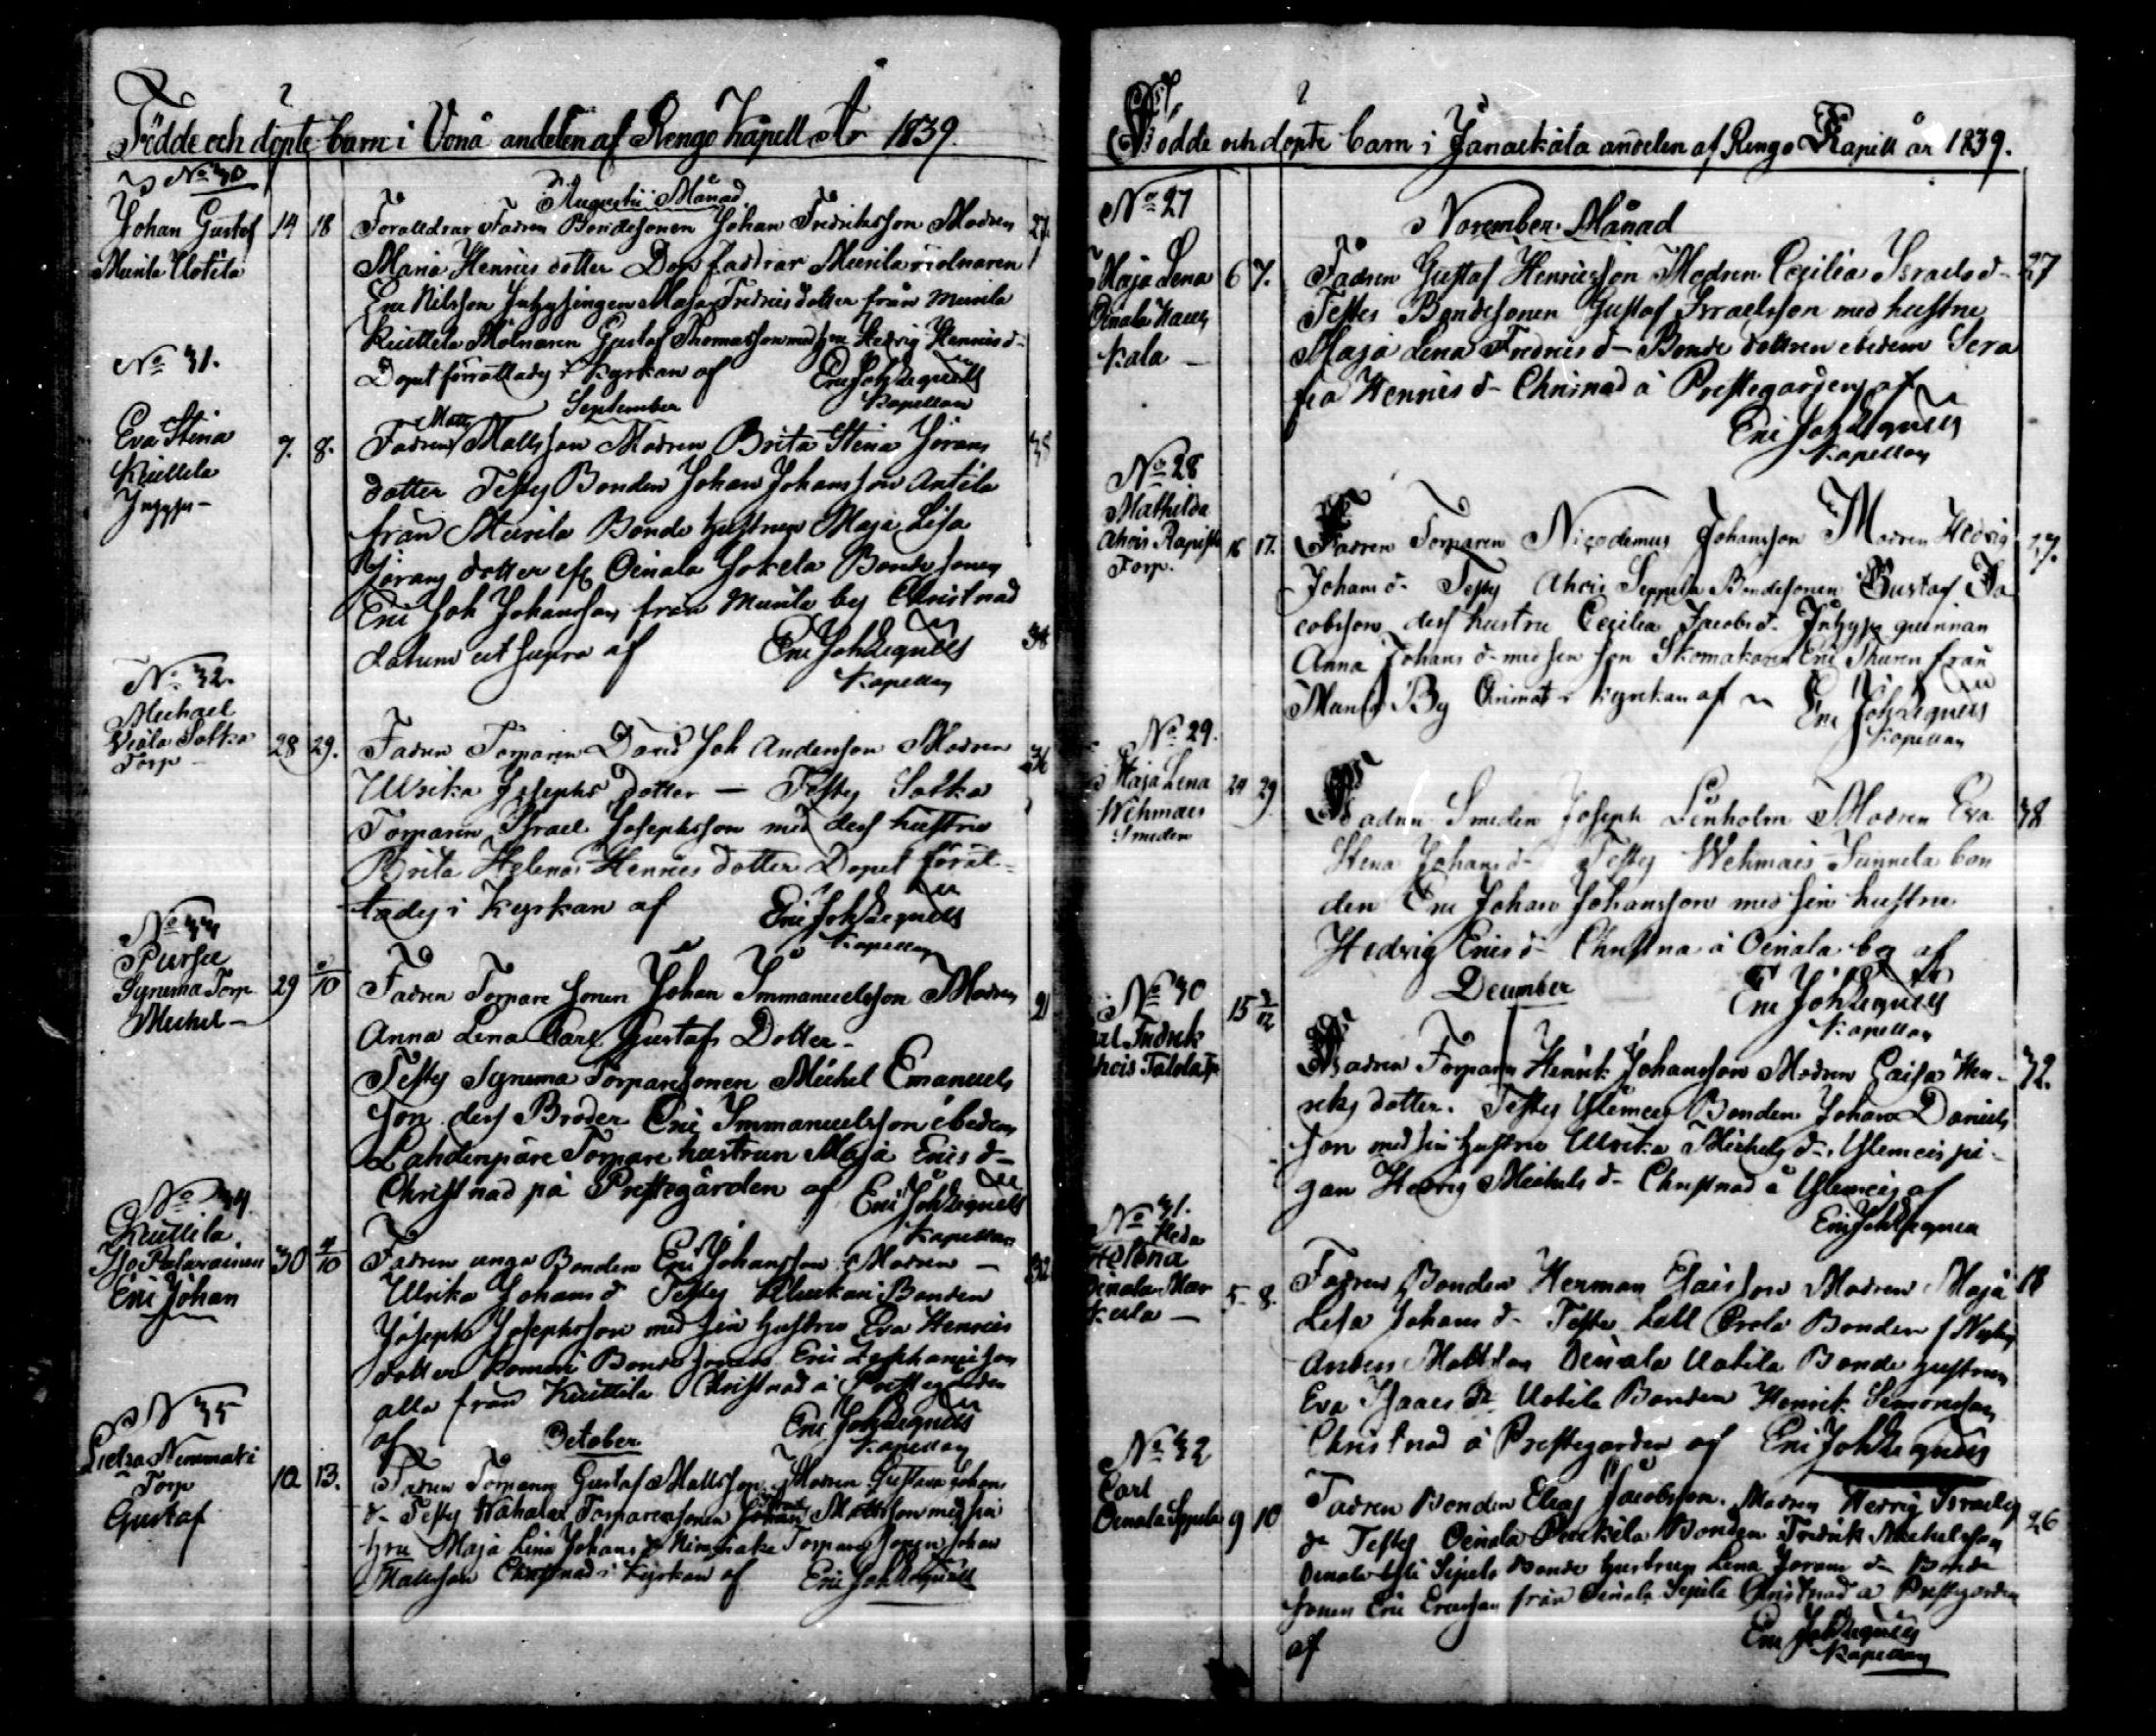 Födde och döpte barn i Vonå andelen af Rengo Kapell År 1839.
No 30
Augustii Månad
Johan Gustaf 14 18 Föralldrar Fadren Bondesonen Johan Fredriksson Modren 27.
Munila Uotila Maria Henrics dotter Dop faddrar Munila mölnaren
Eric Nilsson Inhysingen Maja Fredrics dotter från Munila
Kuittila Mölnaren Gustaf Thomasson med hru Hedvig Henrics d-
Doput förrattades i Kyrkan af Eric Joh Zegnells
Kapellan
No 31.
September
Eva Stina 7. 8. Fadren Matts Mattsson Modren Brita Stina Jörans 35
Kuittila
Inhyses- dotter Testes Bonden Johan Johansson Antila
från Munila Bonde hustrun Maja Lisa
Jörans dotter Oinala Bonde sonen
Eric Joh Johansson från Munila by Christnad
datum ut supra af Eric Joh Zegnells 38
Kapellan
No 32.
Michael
Torp 28 29. Fadren Torparen David Joh Andersson Modren 36
Ulrika Josephs dotter — Testes Salka
Torparen Israel Josephsson med dess hustru
Brita Helena Henrics dotter Dopet förrät-
tades i Kyrkan af Eric Joh Zegnells
Kapellan
No 33
Synema Torp 29 2/10 Fadren Torpare sonen Johan Immanuelsson Modren 21
Michel — Anna Lena Carl Gustafs Dotter-
Testes Synema Torparesonen Michel Emanuels
son dess Broder Eric Immanuelsson ibedem
Lahdenpäre Torpare hustrun Maja Erics d-
Christnad på Prestegården af Eric Joh Zegnells
Kapellan
No 34.
Kuittila 30 4/10 Fadren unga Bonden Eric Johansson Modren —
Eric Johan Ulrika Johans d Testes Bonden
Joseph Josephsson med sin hustru Eva Henrics
dotter Bonde sonen Eric
alla från Kuittila Christnad å Prestegården
af Eric Joh Zegnells
October Kapellan
No 35
Torp 10 13. Fadren Torparen Gustaf Mattsson Modren Gustava Johans
Gustaf d- Testes Torparesonen Mattsson med sin
hru Maja Lina Johans d Torparesonen Johan
Mattsson Christnad i Kyrkan af Eric Joh Zegnells
Födde och döpte barn i Janackala andelen af Rengo Kapell år 1839.
No 27
November Månad
Maja Lena 6 7. Fadren Gustaf Henricsson Modren Cecilia Israels d- 27
Oinala Testes Bondesonen Gustaf Israelsson med hustru
kala — Maja Lena Fredrics d- Bonde dottren ibedem Sera
fia Henrics d- Chrisnad å Prestegården af
Eric Joh Zegnells
Kapellan
No 28
Mathilda
Ahois
Torp. 16 17. Fadren Torparen Nicodemus Johansson Modren Hedvig 27.
Johans d- Testes Ahois Seppela Bondesonen Gustaf Ja
cobsson dess hustru Cecilia Jacobs d- Inhyses quinnan
Anna Johans d- med sin son Skomakaren Eric Thuren från
By i Kyrkan af Eric Joh Zegnells
Kapellan
No 29.
Maja Lena 24 29 Fadren Smeden Joseph Lenholm Modren Eva 38
Wehmais
Smeden Stena Johans d- Testes Wehmais bon
den Eric Johan Johansson med sin hustru
Hedvig Erics d- Christna å Oinala by af
December Eric Joh Zegnells
Kapellan
No 30 15 Fadren Torparen Henrik Johansson Modren Caisa Hen- 32.
Fredrik riks dotter. Testes Bonden Johan Daniels
son med sin hustru Ulrika Michels d-, pi-
gan Hedvig Michels d- Christnad å af
Eric Joh Zegnell
No 31.
Heda
Helena 5 8. Fadren Bonden Herman Esaisson Modren Maja 18
Lisa Johans d- Teste Bonden
Anders Mattsson Oinala Uotila Bonde hustrun
Eva Isaacs d- Uotila Bonden Henrik Simonsson
Christnad å Prestegården af Eric Joh Zegnells
No 32
Carl
Oinala Seppela 9 10 Fadren Bonden Elias Jacobsson. Modren Hedvig Israels 26
d- Testes Oinala Bonden Fredrik Michelsson
Oinala Bonde hustrun Lena Jörans d- Bonde
sonen Eric Ericsson från Oinala Christnad å Prestegården
af Eric Joh Zegnells
Kapellan